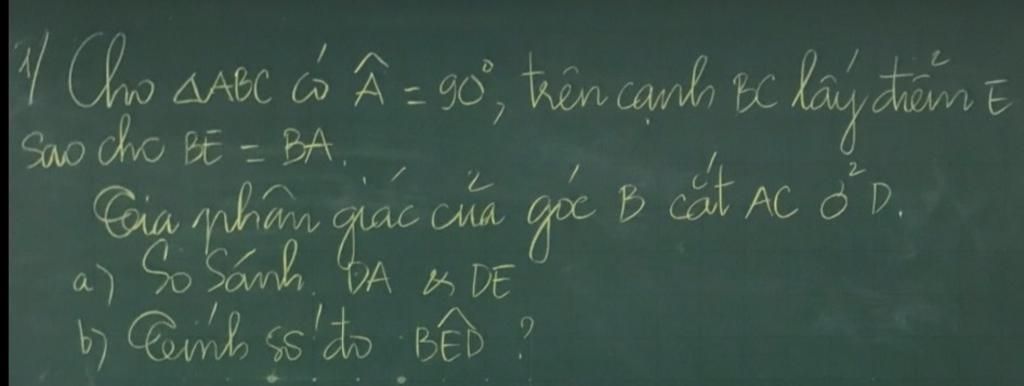 1/ Cho △ABC có Â = 90°, trên cạnh BC lấy điểm E
sao cho BE = BA.
Tia phân giác của góc B cắt AC ở D.
a) So Sánh. DA & DE
b) Tính số đo BÊD ?